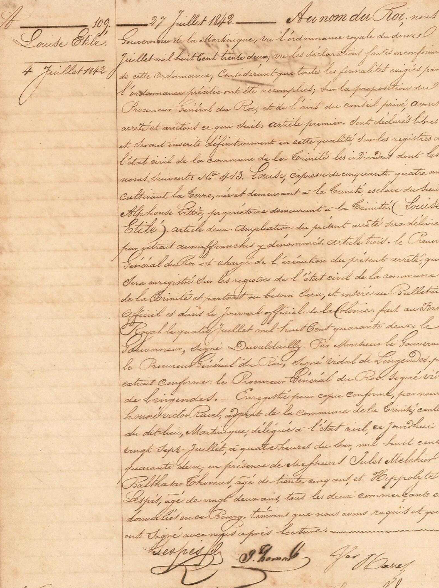 109.
27 Juillet 1842
Au nom du Roi, nous
Louise Etilé
4 Juillet 1842
Gouverneur de la Martinique, vu l'ordonnance royale du douze
Juillet mil huit cent trente deux, vu les déclarations faites en conformité
de cette ordonnance, Considérant que toutes les formalités exigées par
l'ordonnance précitée ont été remplies, Sur la proposition du
Procureur Général du Roi, et de l'avis du conseil privé, avons
arrêté et arrêtons ce qui suit: article premier sont déclarés libres
et seront inscrits définitivement en cette qualité sur les registres de
l'état civil de la commune de la Trinité les individus dont les
noms suivent: No. 413. Louise, capresse de cinquante quatre ans
cultivant la terre, née et demeurant à la Trinité esclave du Sieur
Alphonse propriétaire demeurant à la Trinité (Louise
Etilé) article deux. Ampliation du présent arrêté sera délivrée
aux affranchis y dénommés article trois. le Procureur
Général du Roi est chargé de l'exécution du présent arrêté, qui
sera enregistré sur les registres de l'état civil de la commune
de la Trinité et partout où besoin sera, et inséré au Bulletin
officiel et dans le journal officiel de la Colonie. fait au Fort
Royal le quatre Juillet mil huit cent quarante deux. le
Gouverneur, Signé Duvaldailly Par Monsieur le Gouverneur
le Procureur Général du Roi, Signé Vidal de Lingendes, pour
extrait conforme. le Procureur Général du Roi Signé Vidal
de Lingendes. Enregistré pour copie conforme, par nous
adjoint de la commune de la Trinité, canton
du dit lieu, Martinique, délégué à l'état civil, ce Jourd'hui
vingt sept Juillet, à quatre heures du soir, mil huit cent
quarante deux, en présence de Jules
Balthazar âgé de trente cinq ans, et Hippolyte
Gespés, âgé de vingt deux ans, tous les deux commerçants et
domiciliés en ce Bourg, témoins que nous avons requis et qui
ont signé avec nous après lecture.